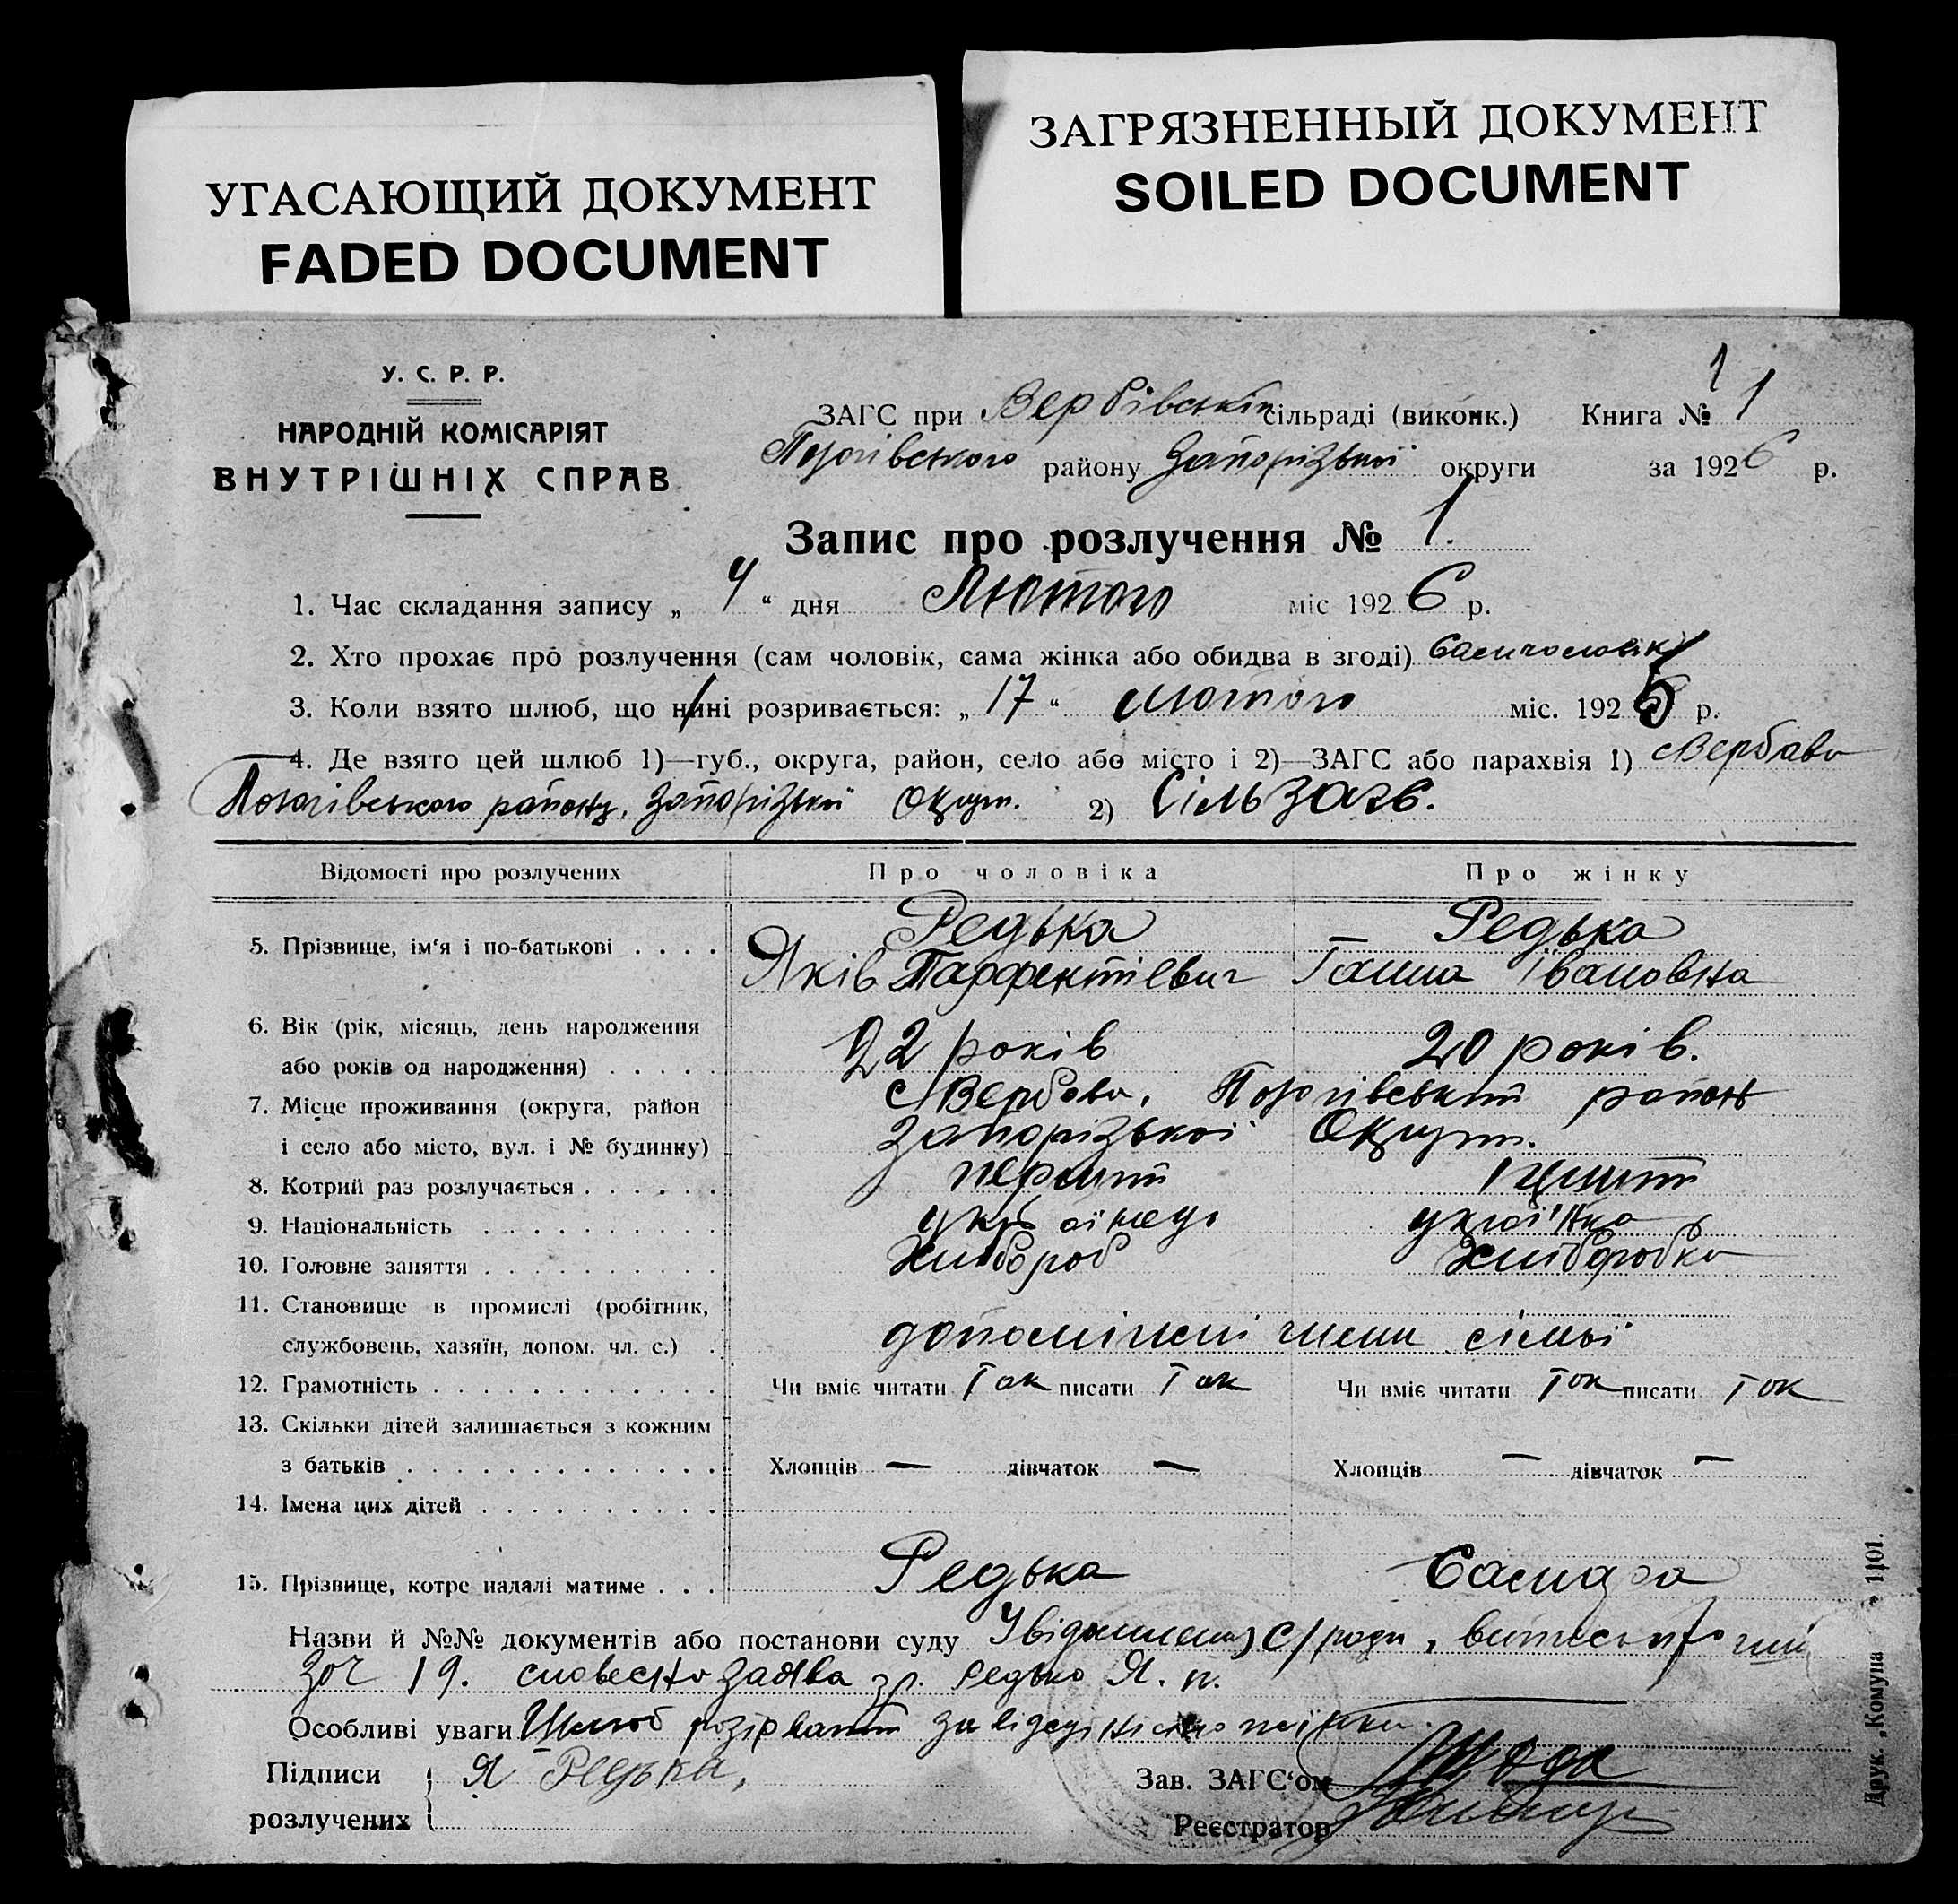 УГАСАЮЩИЙ ДОКУМЕНТ
FADED DOCUMENT
ЗАГРЯЗНЕННЫЙ ДОКУМЕНТ
SOILED DOCUMENT
У. С. Р. Р.
НАРОДНІЙ КОМІСАРІЯТ
ВНУТРІШНІХ СПРАВ
1
ЗАГС при Вербівській сільраді (виконк.) Книга № 1
Пологівського району Запорізької округи за 1926 р.
Запис про розлучення № 1.
1. Час складання запису „ 4 “ дня Лютого міс 1926 р.
2. Хто прохає про розлучення (сам чоловік, сама жінка або обидва в згоді) Сам чоловік
3. Коли взято шлюб, що нині розривається: „ 17 “ лютого міс. 1925 р.
4. Де взято цей шлюб 1)—губ., округа, район, село або місто і 2)—ЗАГС або парахвія 1) с Вербово
Пологівського району, Запорізької Округи. 2) Сільзагс.
Відомості про розлучених Про чоловіка Про жінку
5. Прізвище, ім'я і по-батькові Редька Редька
Яків Парфентіевич Ганна Івановна
6. Вік (рік, місяць, день народження
або років од народження) 22 років 20 років.
7. Місце проживання (округа, район с Вербово, Пологівський район
і село або місто, вул. і № будинку) Запорізької Округи.
8. Котрий раз розлучається перший
9. Національність українець українка
10. Головне заняття Хлібороб Хліборобка
11. Становище в промислі (робітник,
службовець, хазяїн, допом. чл. с.) допоміжні члени сімьї
12. Грамотність Чи вміє читати Так писати Так Чи вміє читати Так писати Так
13. Скільки дітей залишається з кожним
з батьків Хлопців — дівчаток — Хлопців — дівчаток —
14. Імена цих дітей
15. Прізвище, котре надалі матиме Редька
Назви й №№ документів або постанови суду С/ради,
19. словесна заява гр. Редько Я. П.
Особливі уваги Шлюб розірваний за відсутністю
Підписи Я Редька,
розлучених
Зав. ЗАГС‘ом
Реєстратор
Друк. „Комуна 1101.